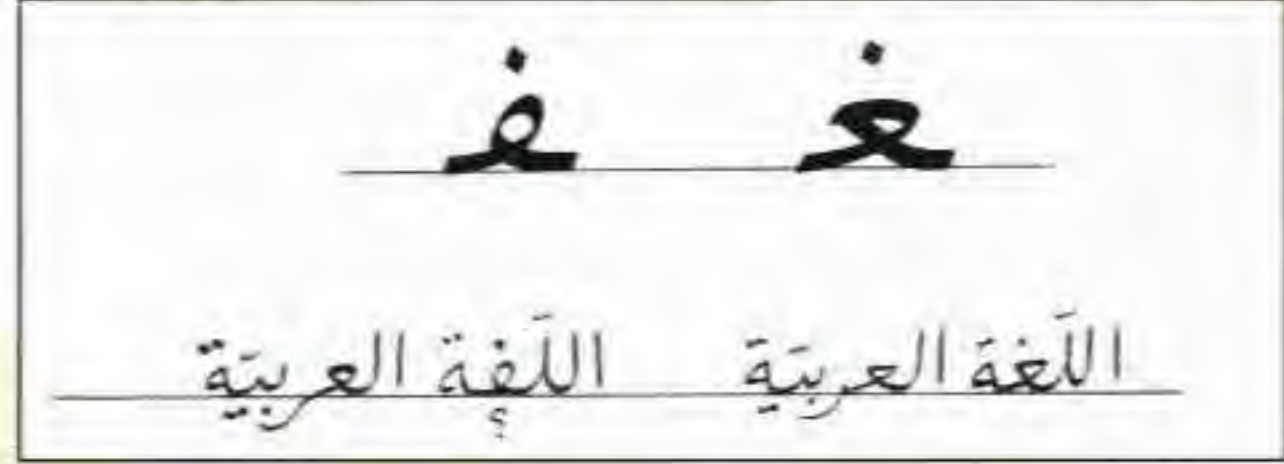 ـغـ ـفـ
اللَغة العربيَة اللَفة العربيَة
؟